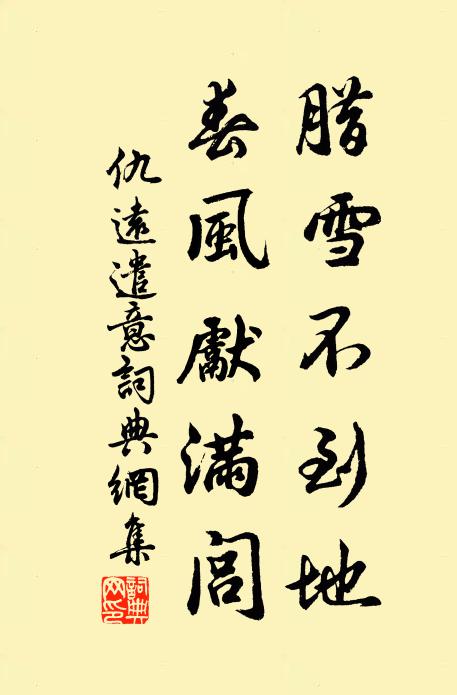 腊雪不到地
春風獻滿閭
仇遠遣意詞典網集
詞典
网印